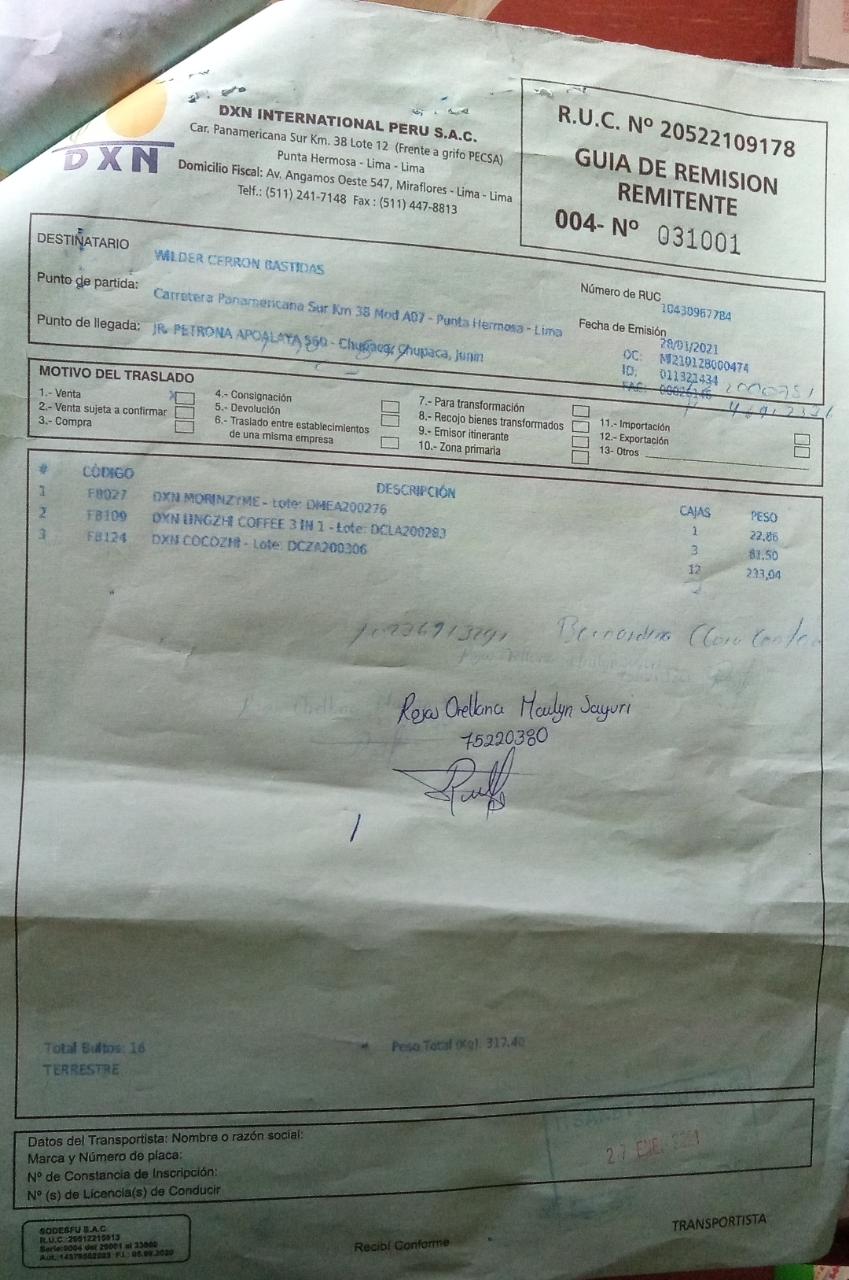 DXN
DXN INTERNATIONAL PERU S.A.C.
Car. Panamericana Sur Km. 38 Lote 12 (Frente a grifo PECSA)
Punta Hermosa - Lima - Lima
Domicilio Fiscal: Av. Angamos Oeste 547, Miraflores - Lima - Lima
Telf.: (511) 241-7148 Fax : (511) 447-8813
R.U.C. Nº 20522109178
GUIA DE REMISION
REMITENTE
004- Nº 031001
DESTINATARIO
WILDER CERRON BASTIDAS
Punto de partida: Carretera Panamericana Sur Km 38 Mod A07 - Punta Hermosa - Lima
Punto de llegada: JR. PETRONA APOALAYA 560 - Chupaca, Chupaca, Junin
Número de RUC
10430967784
Fecha de Emisión
28/01/2021
OC: MI210128000474
ID: 011321434
FAC:
MOTIVO DEL TRASLADO
1.- Venta X
2.- Venta sujeta a confirmar
3.- Compra
4.- Consignación
5.- Devolución
6.- Traslado entre establecimientos
de una misma empresa
7.- Para transformación
8.- Recojo bienes transformados
9.- Emisor itinerante
10.- Zona primaria
11.- Importación
12.- Exportación
13- Otros
# CÓDIGO DESCRIPCIÓN CAJAS PESO
1 FB027 DXN MORINZYME - Lote: DMEA200276 1 22,86
2 FB109 DXN LINGZHI COFFEE 3 IN 1 - Lote: DCLA200283 3 61,50
3 FB124 DXN COCOZHI - Lote: DCZA200306 12 233,04
Rojas Orellana Sayuri
75220380
Total Bultos: 16
Peso Total (Kg). 317.40
TERRESTRE
Datos del Transportista: Nombre o razón social:
Marca y Número de placa:
Nº de Constancia de Inscripción:
Nº (s) de Licencia(s) de Conducir
27 ENE. 2021
SODESFU S.A.C.
Recibí Conforme
TRANSPORTISTA